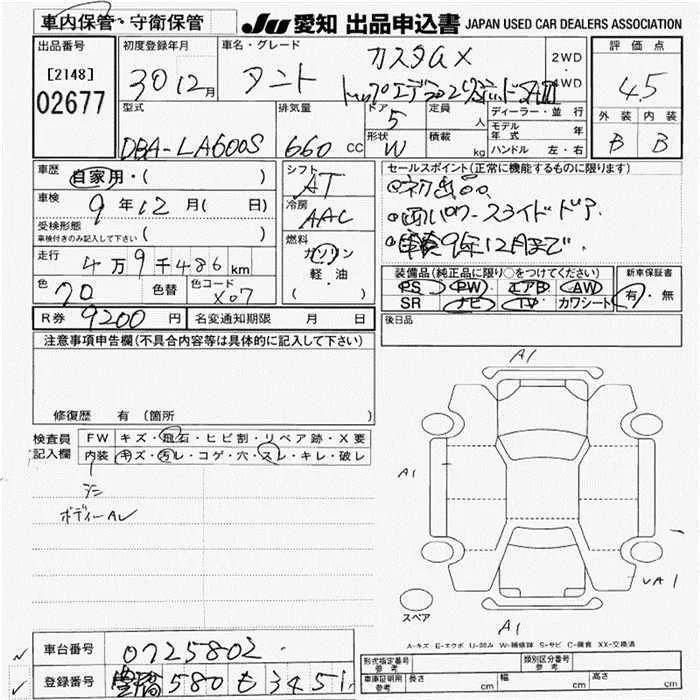 車内保管・守衛保管
JU 愛知 出品申込書 JAPAN USED CAR DEALERS ASSOCIATION
出品番号 初度登録年月 車名・グレード 評価点
[2148] 30 12月 タント カスタムX 2WD・4WD 4.5
02677 SAⅢ
型式 排気量 ドア 定員 ディーラー・並行 外装 内装
5 人 モデル年式 年
形状 積載
DBA-LA600S 660 CC W kg ハンドル 左・右 B B
車歴 自家用・( ) シフト AT セールスポイント(正常に機能するものに限り)
車検 9年12月( 日) 冷房 AAC
受検形態 車検付きのみ記入して下さい ( ) ・両側パワースライドドア
燃料 ガソリン ・車検9年12月まで
走行 4万9千486km 軽・油
( )
色 色替 色コード X07
装備品(純正品に限り○をつけてください) 新車保証書
PS PW エアB AW 有・無
SR ナビ TV カワシート
R券 9200円 名変通知期限 月 日 後日品
注意事項申告欄(不具合内容等は具体的に記入して下さい)
修復歴 有 (箇所 )
検査員記入欄 FW キズ・飛石・ヒビ割・リペア跡・X要
内装 キズ・汚レ・コゲ・穴・スレ・キレ・破レ
A1
A1
ボディーAレ
A1
スペア
A1
A-キズ E-エクボ U-凹み W-補修跡 S-サビ C-腐食 XX-交換済
車台番号 0725802
登録番号 豊橋 580 も 3451
形式指定番号 参考 類別区分番号 参考
車庫証明用 参考 長さ cm 幅 cm 高さ cm